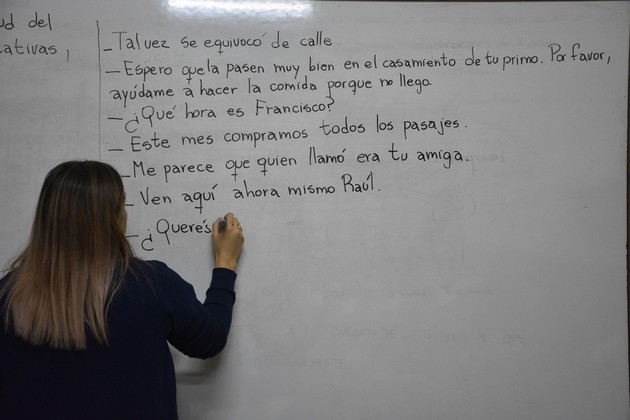 ud del
cativas,
- Tal vez se equivocó de calle.
- Espero que la pasen muy bien en el casamiento de tu primo. Por favor,
ayúdame a hacer la comida porque no llego.
- ¿Qué hora es Francisco?
- Este mes compramos todos los pasajes.
- Me parece que quien llamó era tu amiga.
- Ven aquí ahora mismo Raúl.
- ¿Querés